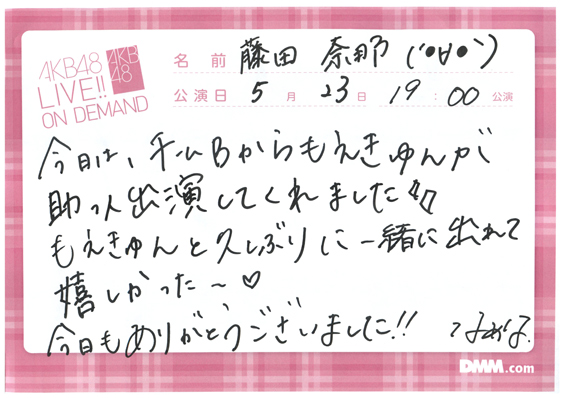 AKB48
LIVE!!
ON DEMAND
AKB
48
名前 藤田 奈那 (´•∀•`)
公演日 5月 23日 19:00 公演
今日は、チームBからもえきゅんが
助っ人出演してくれました
もえきゅんと久しぶりに一緒に出れて
嬉しかった〜♡
今日もありがとうございました!!
DMM.com